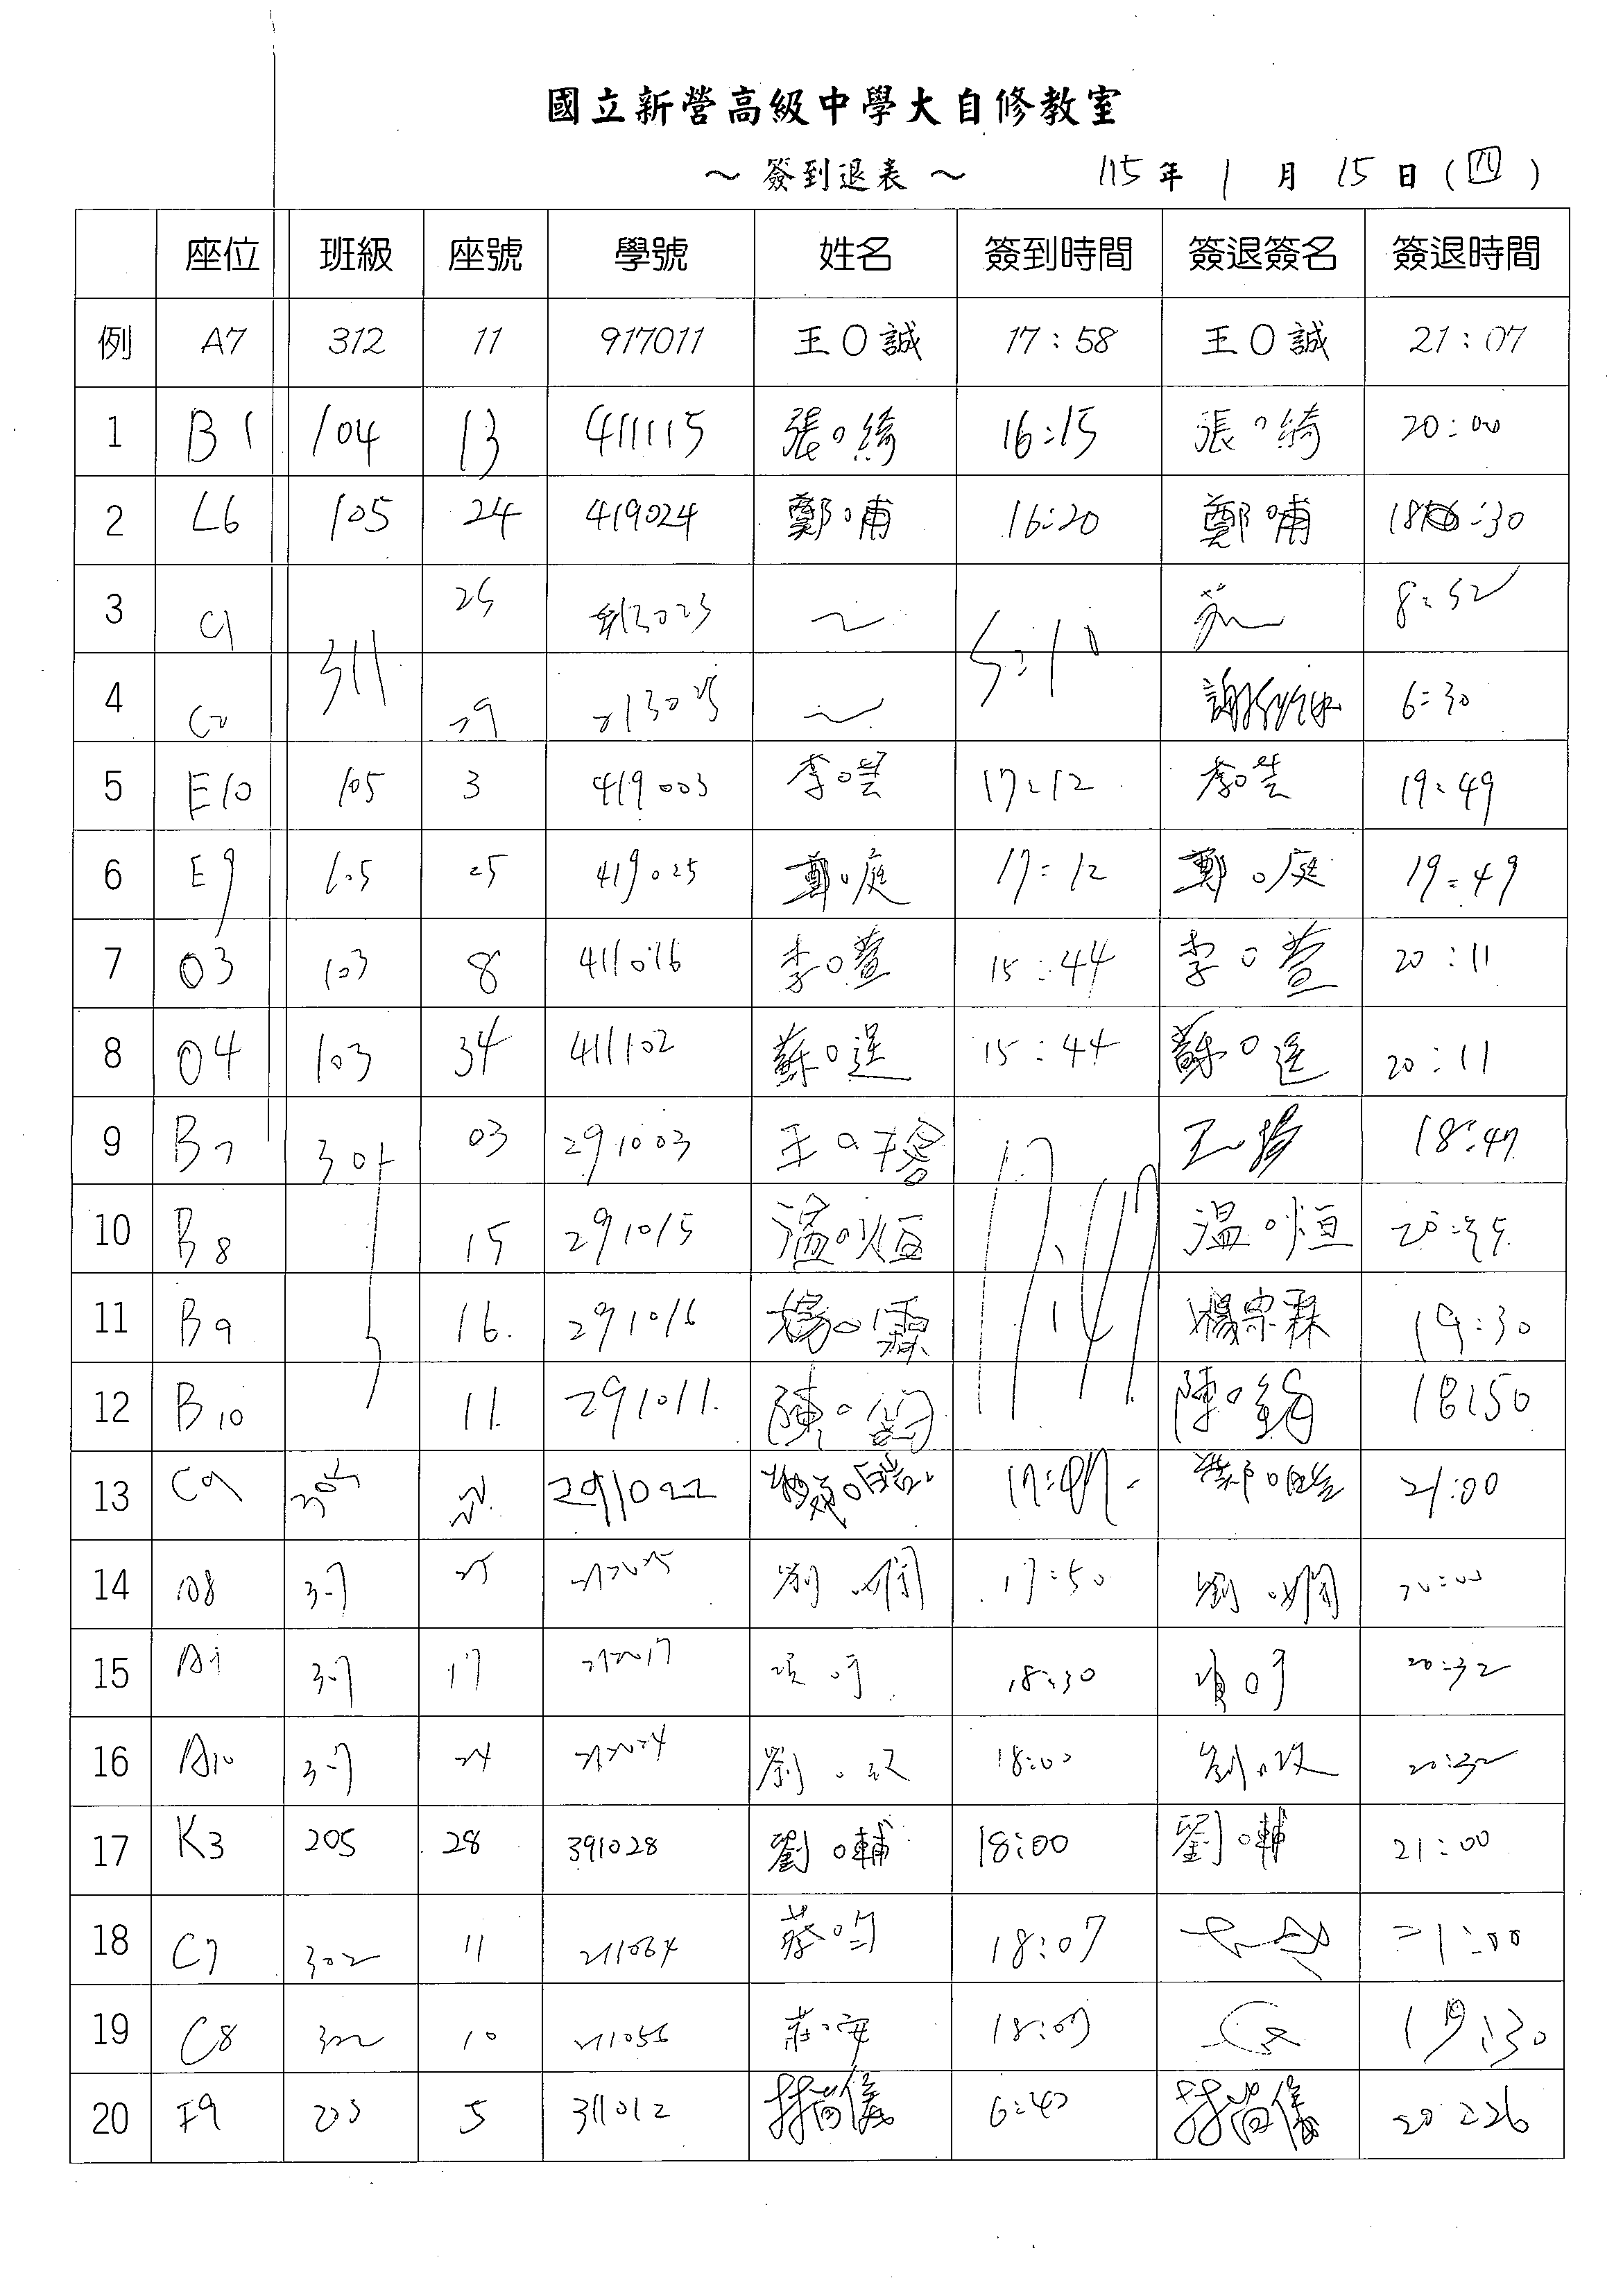 國立新營高級中學大自修教室
～ 簽到退表 ～ 115 年 1 月 15 日 (四)
座位 班級 座號 學號 姓名 簽到時間 簽退簽名 簽退時間
例 A7 312 11 917011 王〇誠 17:58 王〇誠 21:07
1 B1 104 13 411115 張〇綺 16:15 張〇綺 20:00
2 L6 105 24 419024 鄭〇甫 16:20 鄭〇甫 18:30
3 C1 311 25 5:10 8:52
4 C2 29 6:30
5 E10 105 3 419003 李〇 17:12 李〇 19:49
6 E9 105 25 419025 鄭〇庭 17:12 鄭〇庭 19:49
7 O3 103 8 411016 李〇萱 15:44 李〇萱 20:11
8 O4 103 34 411102 蘇〇 15:44 蘇〇 20:11
9 B7 03 291003 王〇 17:47 王 18:47
10 B8 15 291015 溫〇恒 温〇恒
11 B9 16. 291016 楊〇霖 楊宗霖 19:30
12 B10 11. 291011. 陳〇鈞 陳〇鈞 18:50
13 C9 291022 21:00
14 108 307 25 劉〇嫻 17:50 劉〇嫻 20:00
15 A9 307 17 18:30 20:32
16 A10 307 24 劉〇 18:00 劉〇 20:32
17 K3 205 28 391028 劉〇輔 18:00 劉〇輔 21:00
18 C7 302 11 211064 蔡〇昀 18:07 21:00
19 C8 302 10 211056 莊〇安 18:07 19:30
20 F9 203 5 311012 林尚儀 6:40 林尚儀 20:26